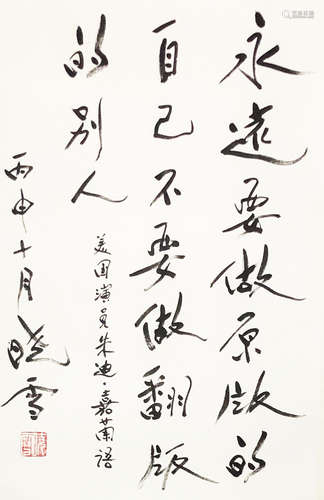 永遠要做原版的
自己不要做翻版
的别人
美国演员朱迪·嘉兰语
丙申十月晓雪